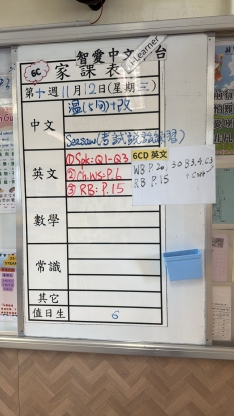 智愛中文
台
e-Learner
6C
家課表
第十週 11月12日(星期三)
中文
溫(5同)+改
Seesaw(考試說話練習)
英文
①Spk: Q1-Q3
②Ch.WS: P.6
③RB: P.15
6CD 英文
WB P.20,
RB P.15
數學
常識
其它
值日生
6